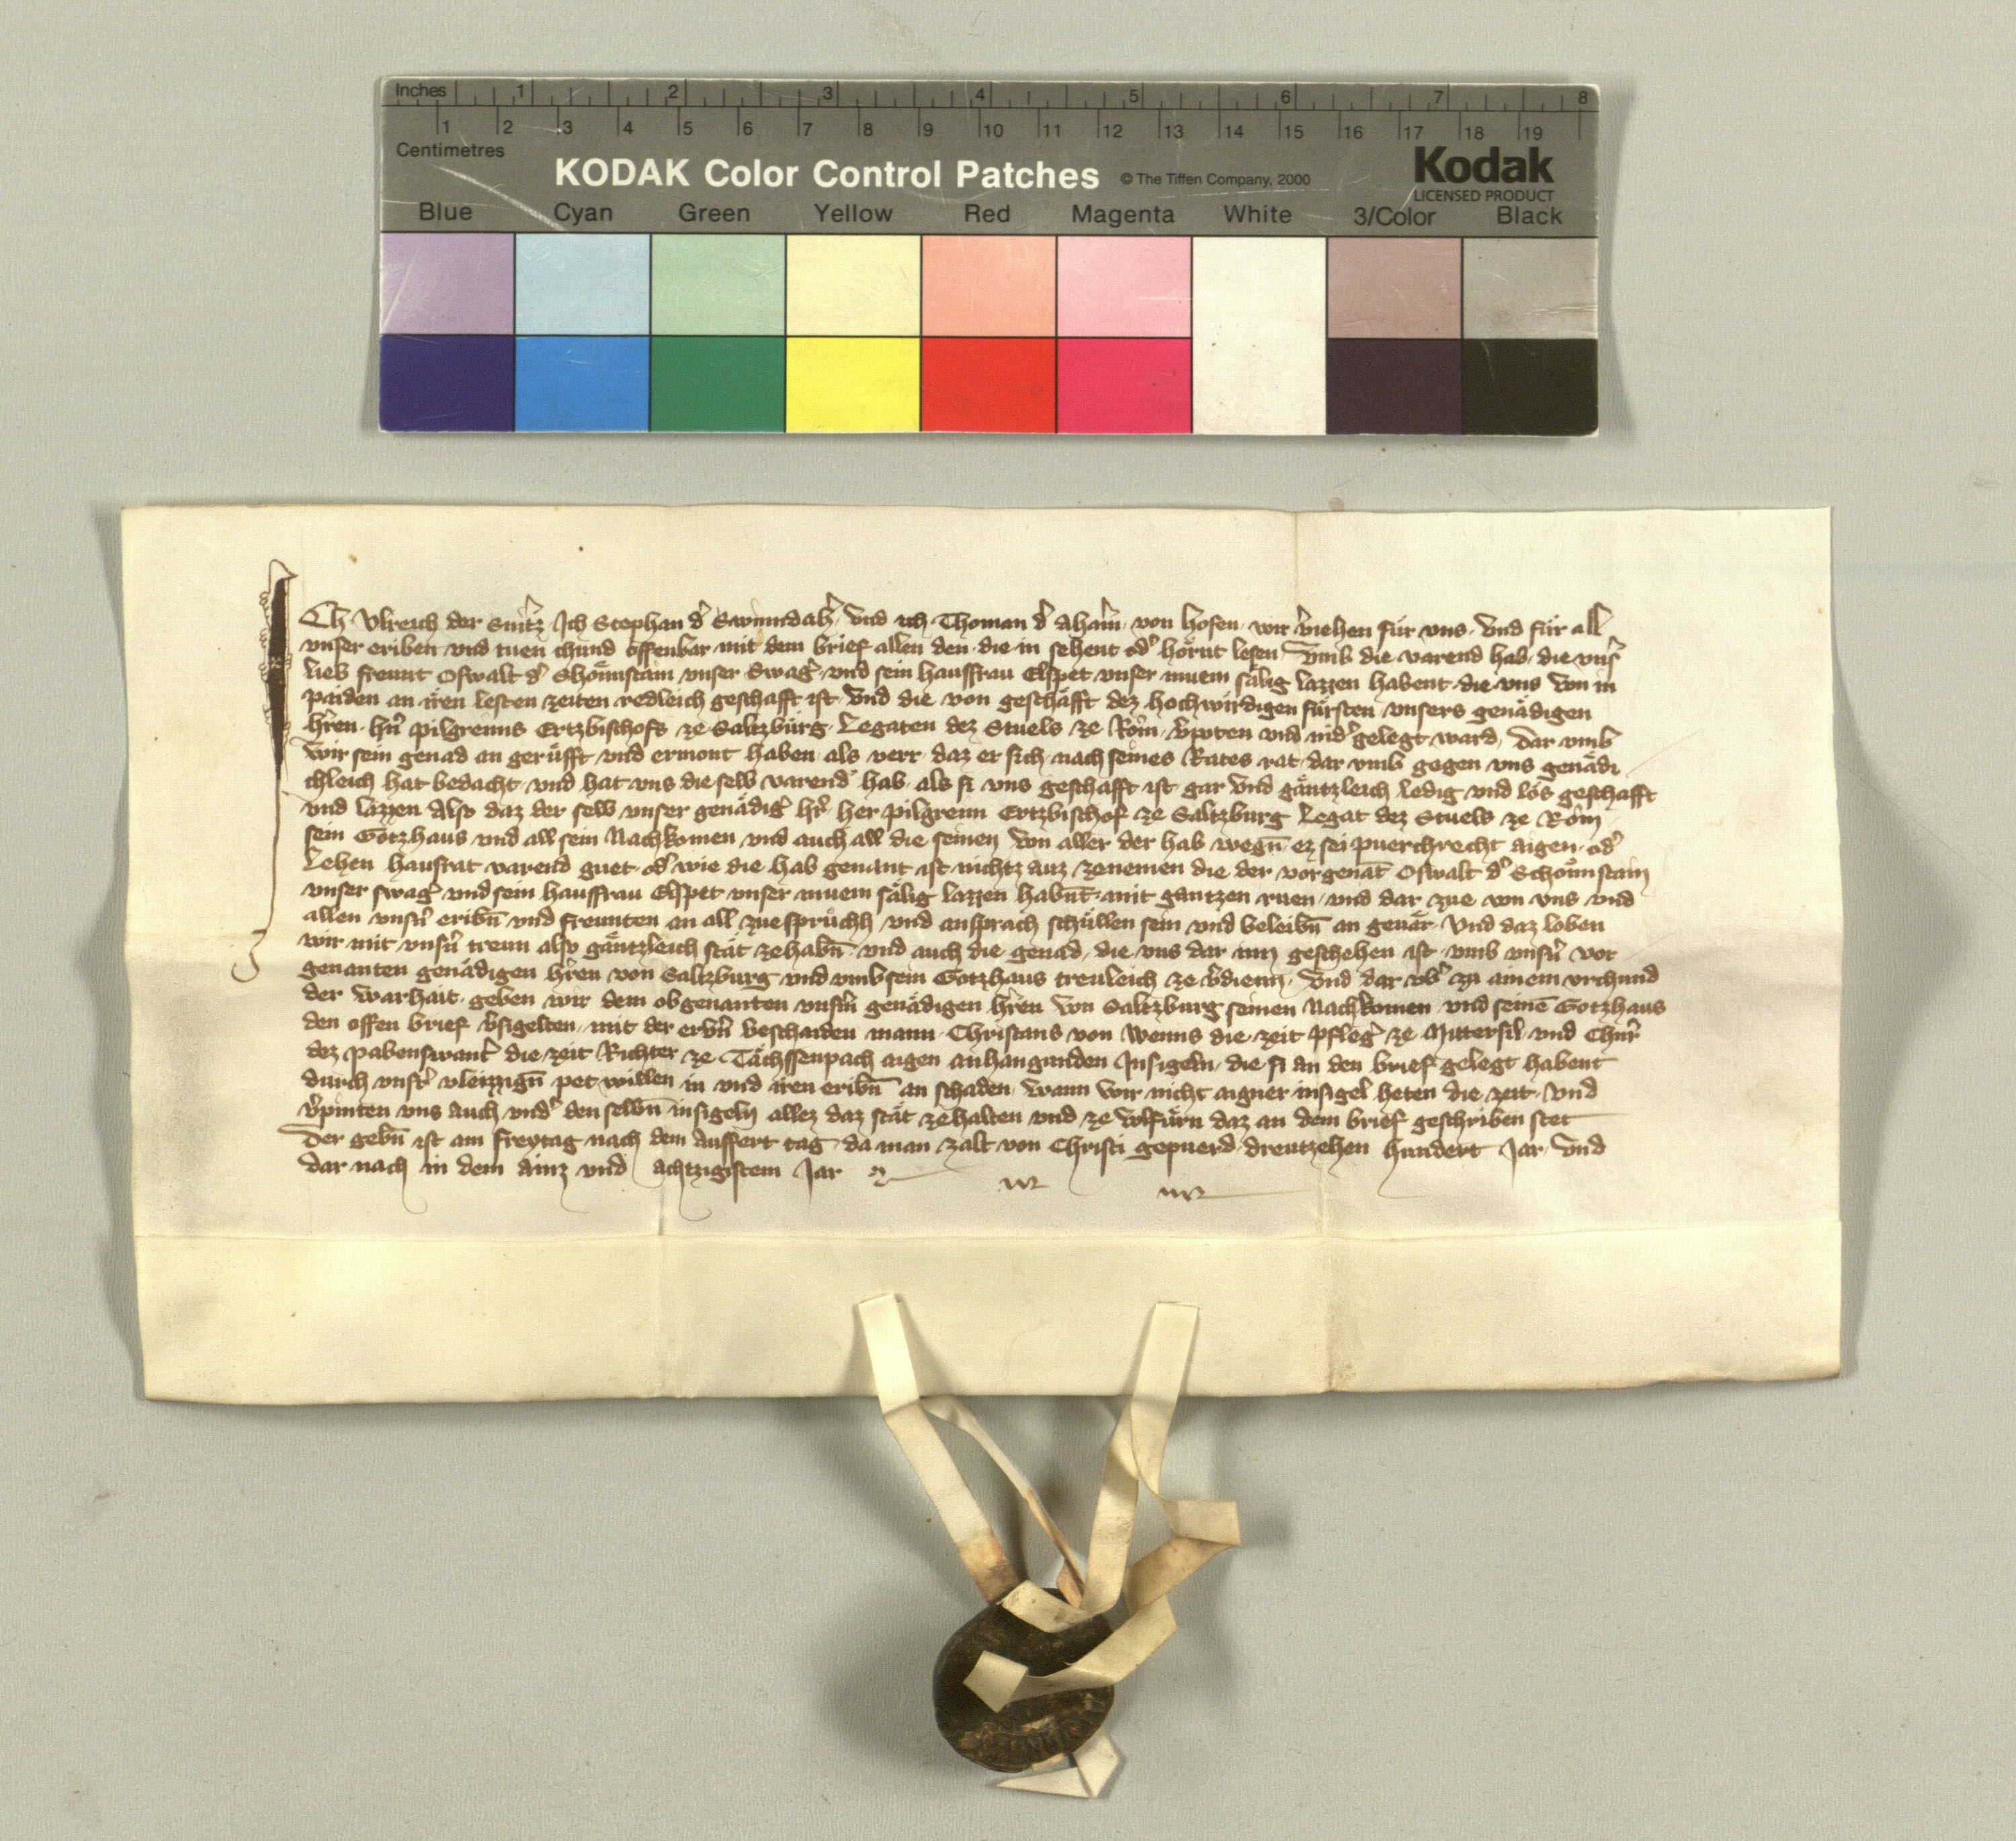 Inches 1 2 3 4 5 6 7 8
1 2 3 4 5 6 7 8 9 10 11 12 13 14 15 16 17 18 19
Centimetres
KODAK Color Control Patches © The Tiffen Company, 2000 Kodak
LICENSED PRODUCT
Blue Cyan Green Yellow Red Magenta White 3/Color Black
Ich Ulreich der Ich Stephan d' und ich Thoman d' Aham̄ von hofen wir v̄iehen für uns und für all
unser eriben und tuen chund offenbar mit dem brief allen den die in sehent od' hörnt lesen Umb die varend hab die uns'
lieb freunt Oswalt d' Shönnstain unser Swag' und sein hausfrau Elspet unser muem sälig lazzen habent die uns von in
paiden an iren lesten zeiten redleich geschafft ist Und die von geschäfft dez hochwirdigen fürsten unsers genädigen
h'ren h'n pilgreims Ertzbischofs ze Saltzburg Legaten dez Stuels ze Rom v'poten und nid'gelegt ward, Dar umb
wir sein genad an gerüfft und ermont haben als verr daz er sich nach seines Rates rat dar umb gegen uns genädi
chleich hat bedacht und hat uns die selb varend hab als si uns geschafft ist gar und gäntzleich ledig und los geschafft
und lazzen Also daz der selb unser genädig' h'r her pilgreim Ertzbischof ze Saltzburg Legat dez Stuels ze Rom
sein Gotzhaus und all sein Nachkomen und auch all die seinen von aller der hab wegn̄ ez sei puerchrecht aigen od'
Lehen hausrat varend guet od' wie die hab genant ist nichtz auz zenemen die der vorgenāt Oswalt d' Schönnstain
unser swag' und sein hausfrau Elspet unser muem sälig lazzen habn̄t mit gantzen ruen und dar zue von uns und
allen unsn̄ eribn̄ und freunten an all zuesprüchh und ansprach schüllen sein und beleibn̄ an genär Und daz loben
wir mit unsn̄ treun also gäntzleich stät zehabn̄ und auch die genad die uns dar inn geschehen ist umb unsn̄ vor
genanten genädigen h'ren von Saltzburg und umb sein Gotzhaus treuleich ze v'dienn Und dar vb' zu ainem urchund
der warhait geben wir dem obgenanten unsm̄ genädigen h'ren von Saltzburg seinen Nachkomen und seinē Gotzhaus
den offen brief v'sigelten mit der erb'n bescharden mann Christans von Wenns die zeit pfleg' ze Mittersil und
dez pabenswant' die zeit Richter ze Tächssenpach aigen anhangunden Insigeln die si an den brief gelegt habent
durch uns'r vleizzign̄ pet willen in und iren eribn̄ an schaden wann wir nicht aigner insigel heten die zeit Und
v'pinten uns auch und' den selbn̄ insigeln allez daz stät zehalten und ze volfürn daz an dem brief geschriben stet
Der gebn̄ ist am freytag nach dem Auffert tag da man zalt von Christi gepuerd dreutzehen hundert Jar und
dar nach in dem ainz und achtzigistem Jar